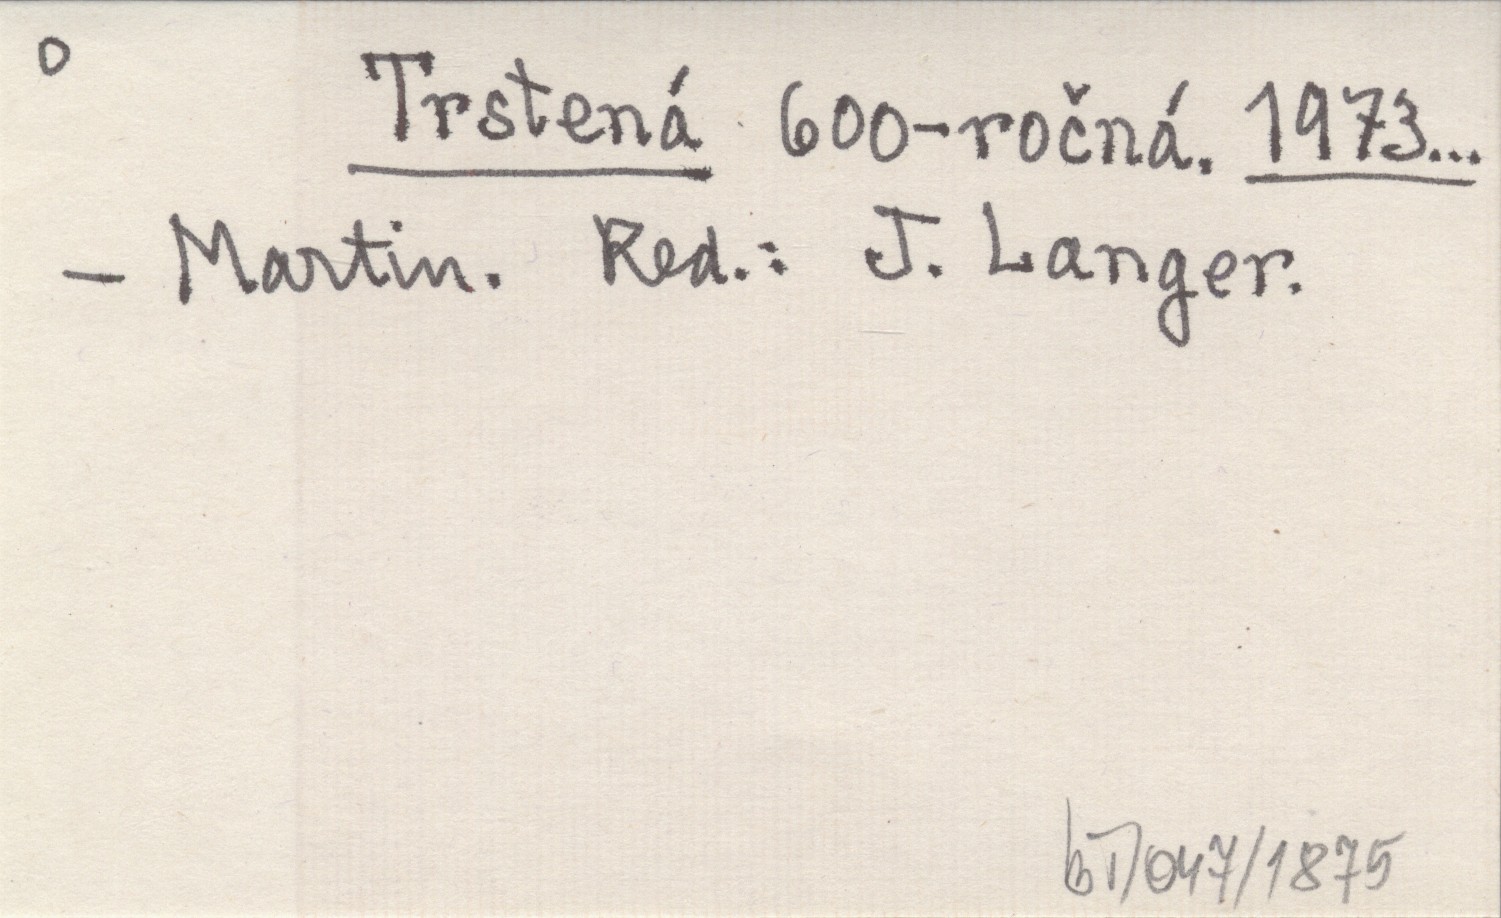 o
Trstená 600-ročná. 1973...
— Martin. Red.: J. Langer.
bI/047/1875